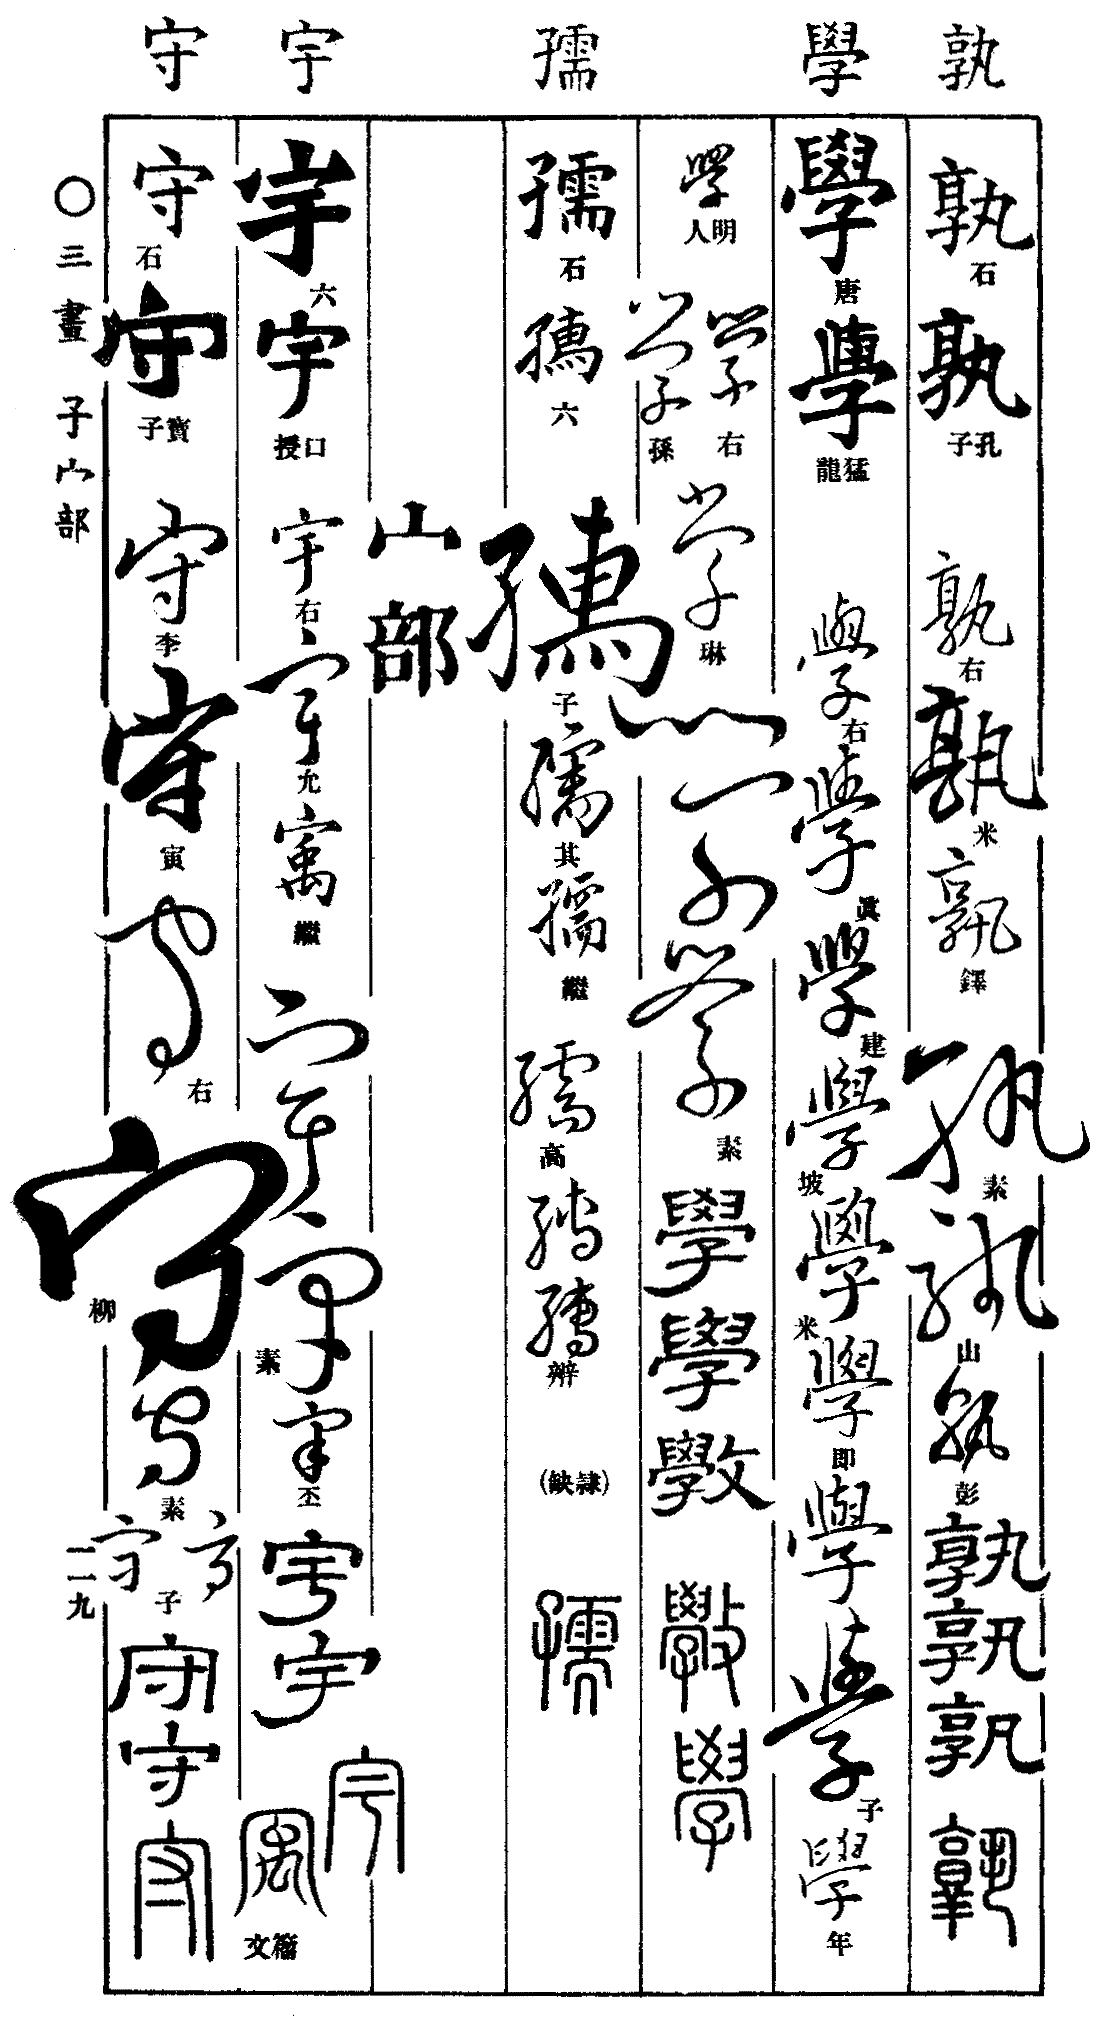 孰
學
孺
宇
守
孰
石
孰
孔子
孰
右
孰
米
孰
鐸
孰
素
孰
山
孰
彭
孰
孰
孰
孰
學
唐
學
猛龍
學
右
學
眞
學
建
學
坡
學
米
學
即
學
學
子
學
年
學
明人
學
右
學
孫
學
琳
學
學
素
學
學
斆
斆
學
孺
石
孺
六
孺
子
孺
其
孺
繼
孺
高
孺
孺
辨
(隷缺)
孺
宀部
宇
六
宇
口授
宇
右
宇
允
㝢
繼
宇
宇
素
宇
丕
宇
宇
宇
㝢
籀文
守
石
守
寶子
守
李
守
寅
守
右
守
柳
守
素
守
守
子
守
守
守
〇三畫 子宀部
二一九